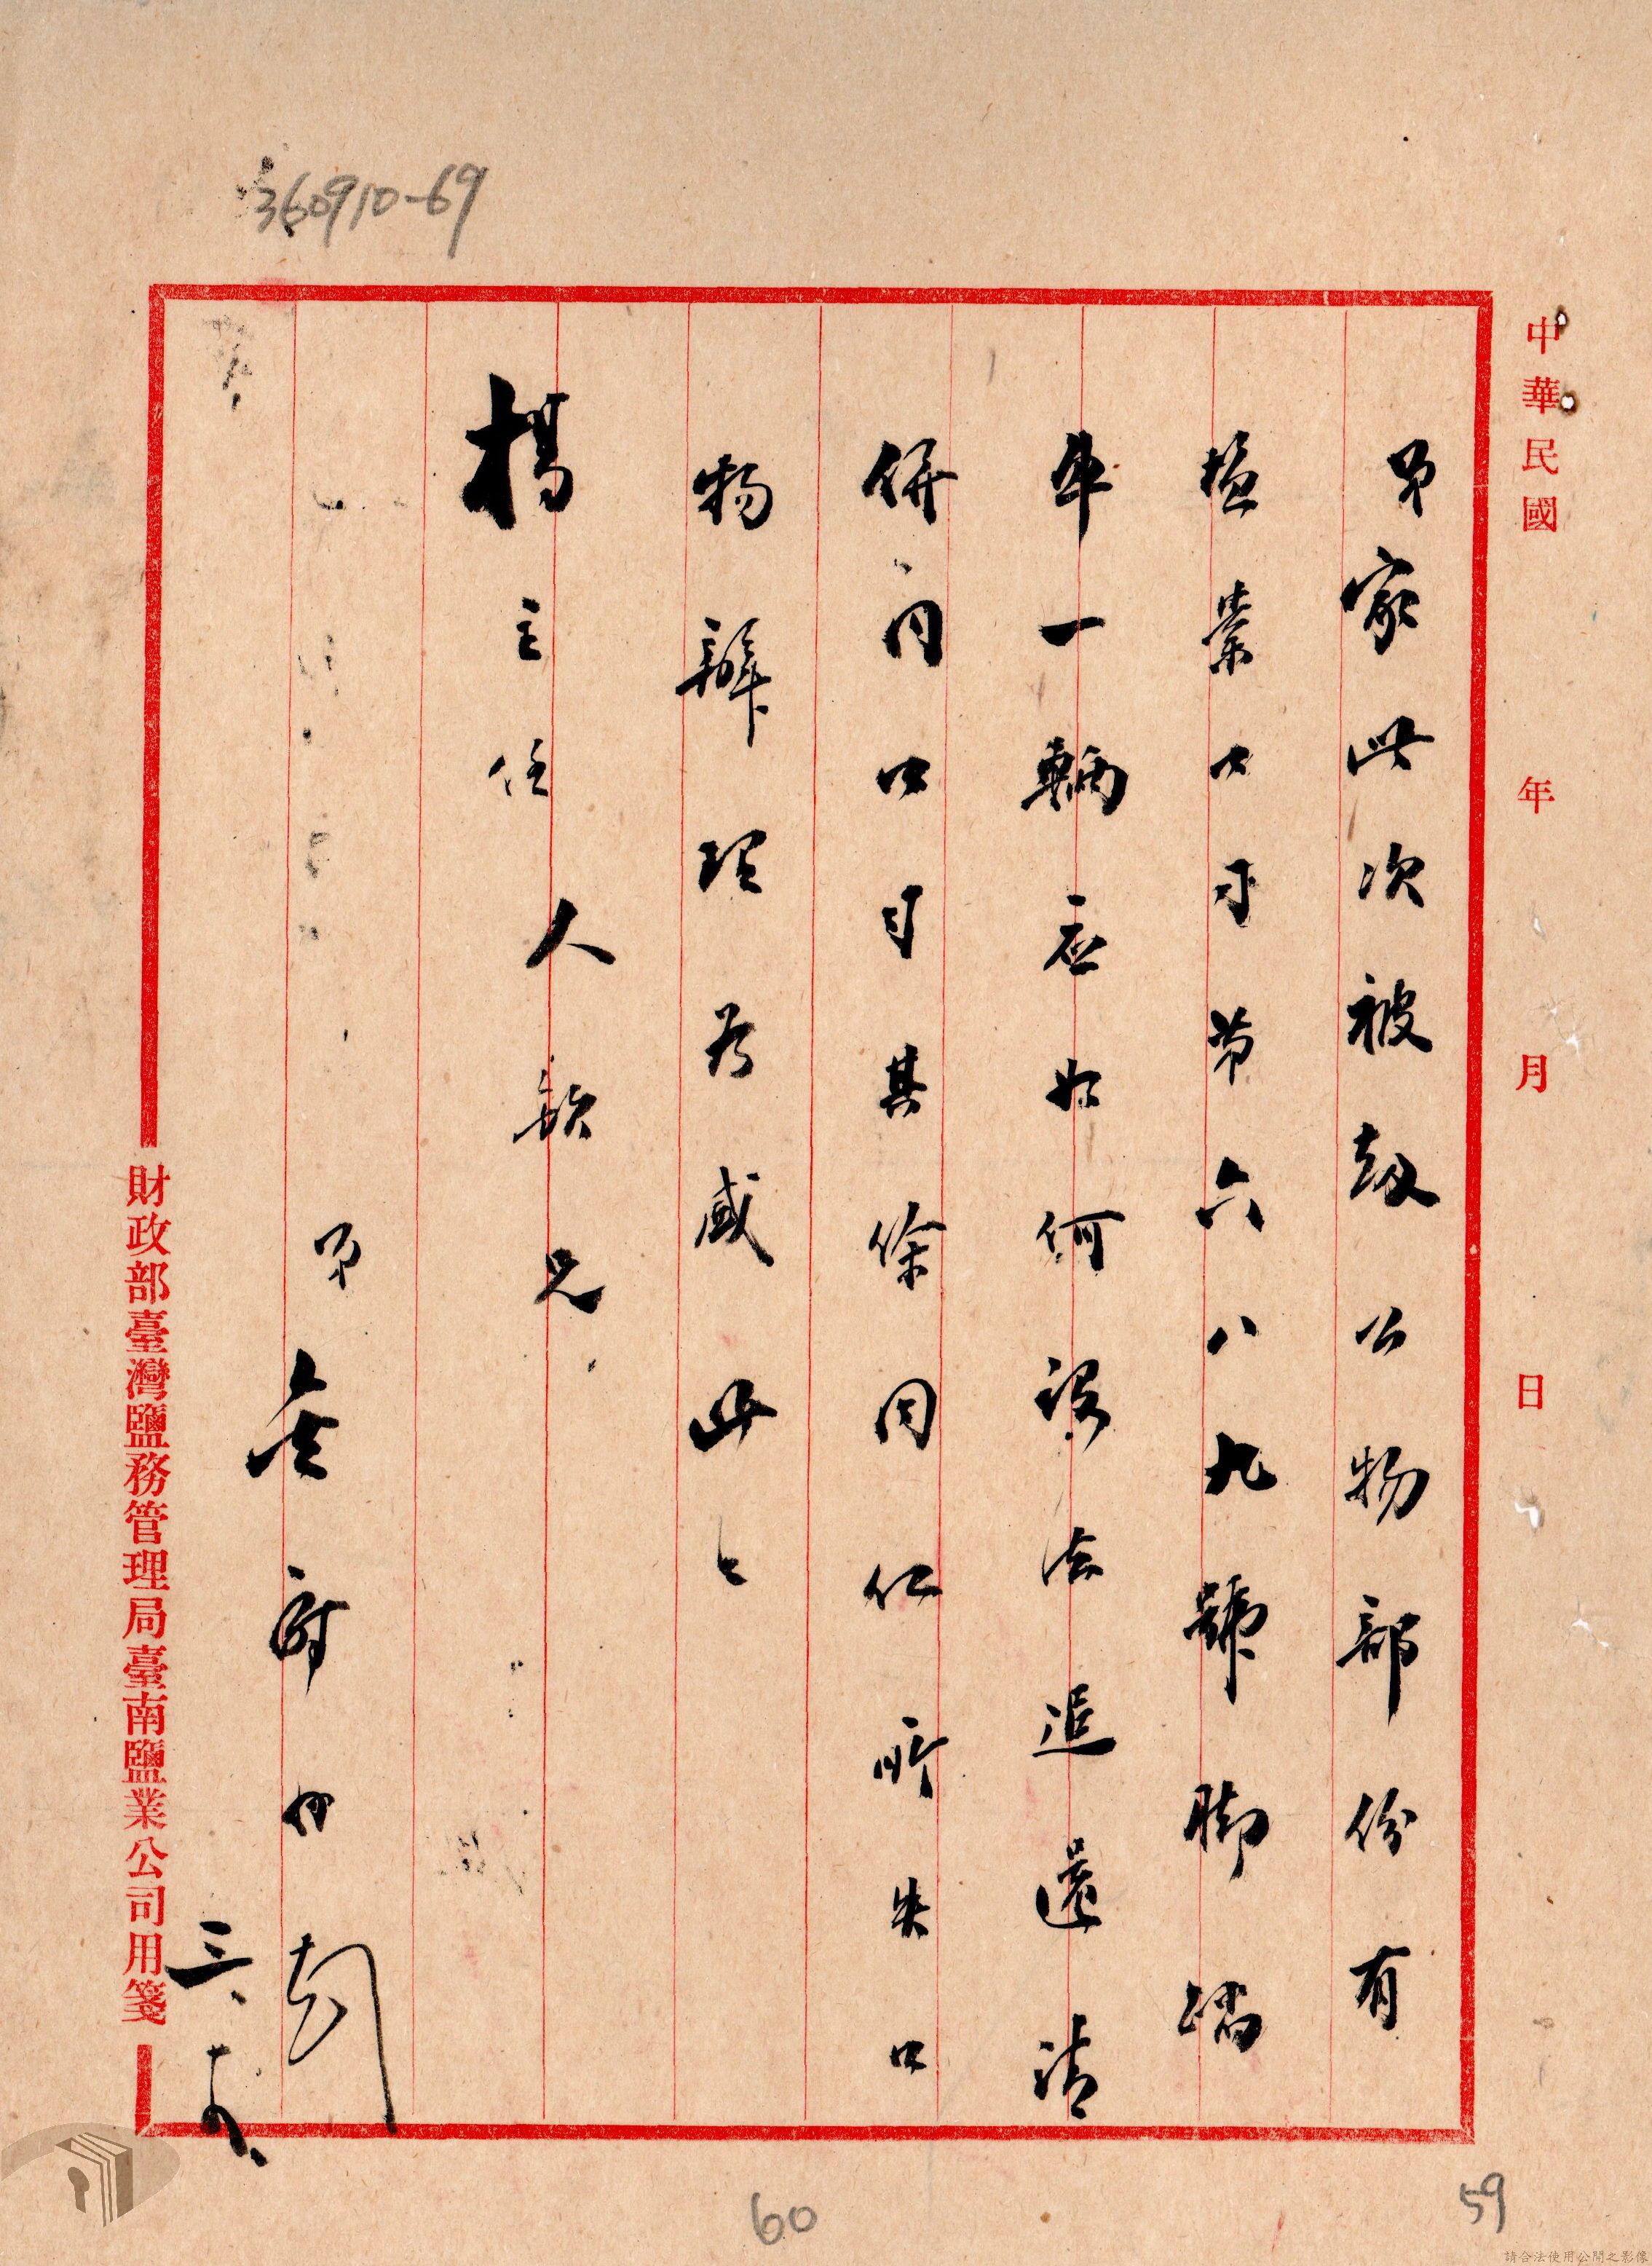 360910-69
中華民國 年 月 日
弟家此次被劫公物部份有
鹽業公司第六八九號脚踏
車一輛應如何設法追還請
併同公司其餘同仁所失公
物辦理為感此上
楊主任人欽兄
弟
三、
財政部臺灣鹽務管理局臺南鹽業公司用箋
60
59
請合法使用公開之影像